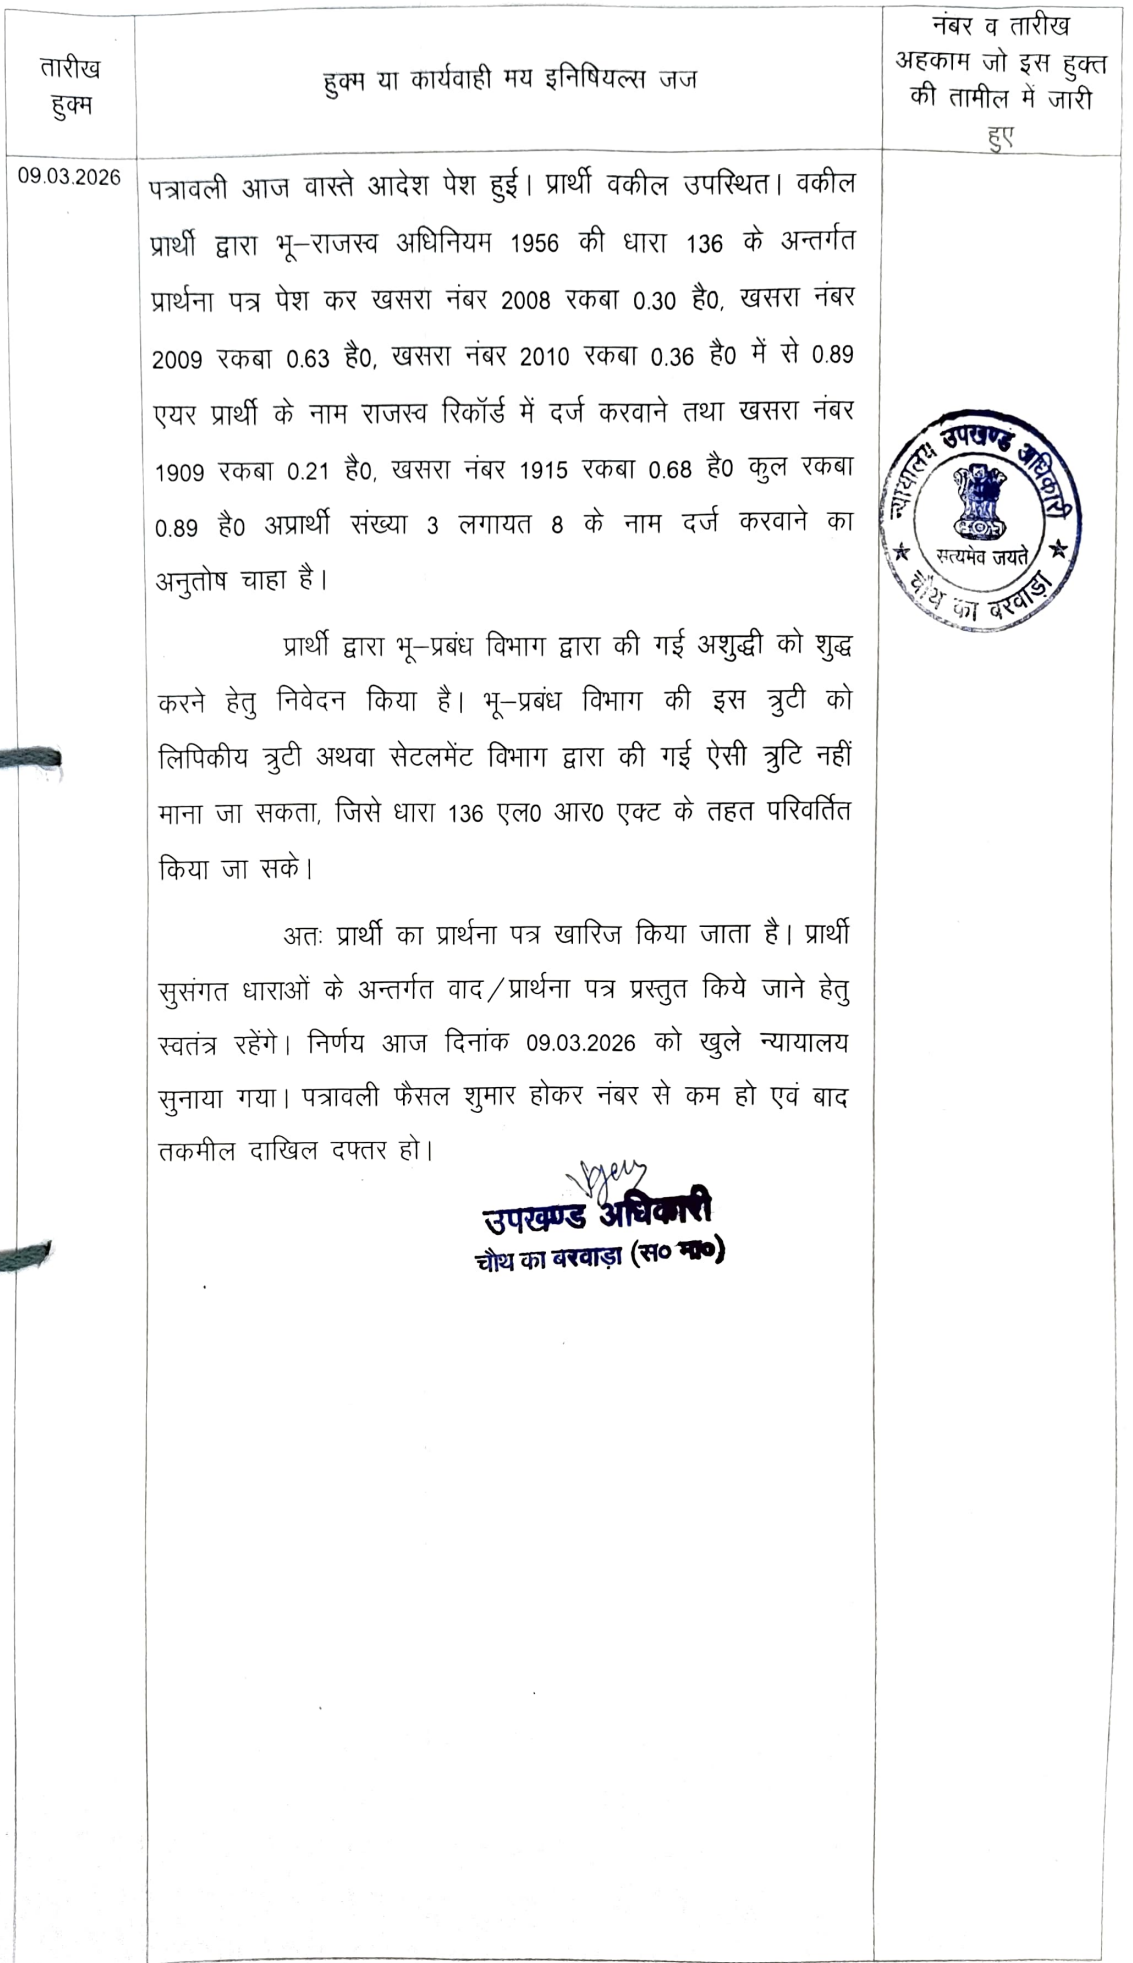 तारीख
हुक्म
हुक्म या कार्यवाही मय इनिषियल्स जज
नंबर व तारीख
अहकाम जो इस हुक्त
की तामील में जारी
हुए
09.03.2026
पत्रावली आज वास्ते आदेश पेश हुई। प्रार्थी वकील उपस्थित। वकील
प्रार्थी द्वारा भू–राजस्व अधिनियम 1956 की धारा 136 के अन्तर्गत
प्रार्थना पत्र पेश कर खसरा नंबर 2008 रकबा 0.30 है0, खसरा नंबर
2009 रकबा 0.63 है0, खसरा नंबर 2010 रकबा 0.36 है0 में से 0.89
एयर प्रार्थी के नाम राजस्व रिकॉर्ड में दर्ज करवाने तथा खसरा नंबर
1909 रकबा 0.21 है0, खसरा नंबर 1915 रकबा 0.68 है0 कुल रकबा
0.89 है0 अप्रार्थी संख्या 3 लगायत 8 के नाम दर्ज करवाने का
अनुतोष चाहा है।
प्रार्थी द्वारा भू–प्रबंध विभाग द्वारा की गई अशुद्धी को शुद्ध
करने हेतु निवेदन किया है। भू–प्रबंध विभाग की इस त्रुटी को
लिपिकीय त्रुटी अथवा सेटलमेंट विभाग द्वारा की गई ऐसी त्रुटि नहीं
माना जा सकता, जिसे धारा 136 एल0 आर0 एक्ट के तहत परिवर्तित
किया जा सके।
अतः प्रार्थी का प्रार्थना पत्र खारिज किया जाता है। प्रार्थी
सुसंगत धाराओं के अन्तर्गत वाद/प्रार्थना पत्र प्रस्तुत किये जाने हेतु
स्वतंत्र रहेंगे। निर्णय आज दिनांक 09.03.2026 को खुले न्यायालय
सुनाया गया। पत्रावली फैसल शुमार होकर नंबर से कम हो एवं बाद
तकमील दाखिल दफ्तर हो।
उपखण्ड अधिकारी
चौथ का बरवाड़ा (स० मा०)
न्यायालय उपखण्ड अधिकारी
सत्यमेव जयते
चौथ का बरवाड़ा